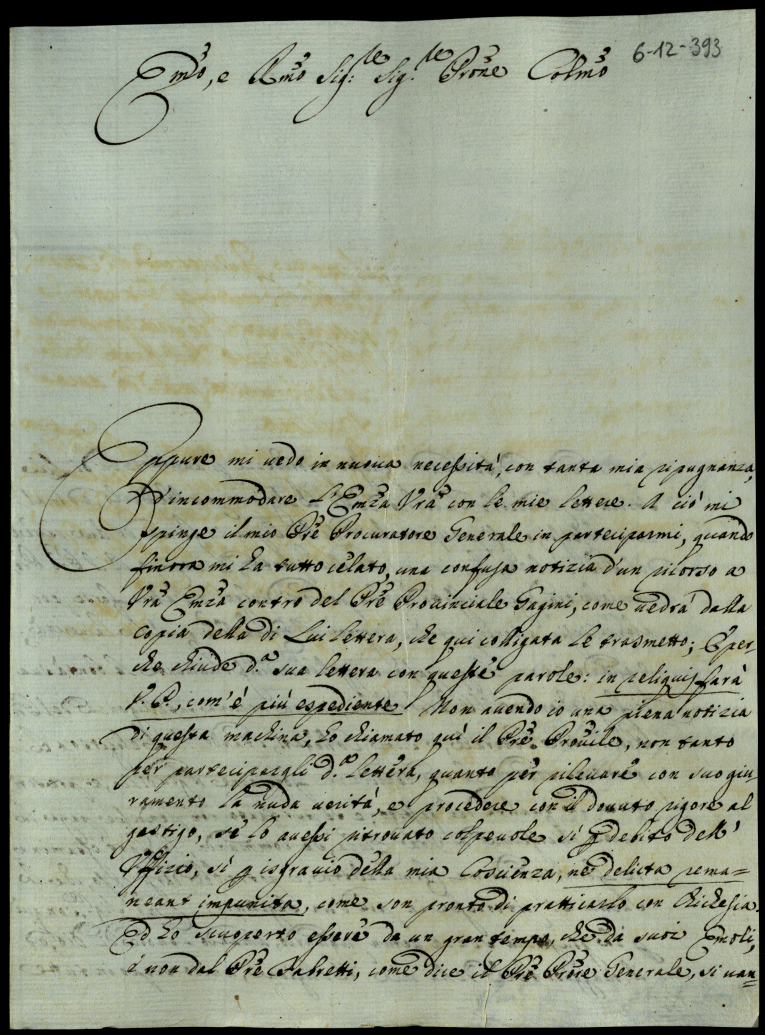 6-12-393
Em̃o, e Rm̃o Sig:re Sig:re Prõne Colm̃o
Eppure mi vedo in nuova necessità, con tanta mia ripugnanza,
d'incommodare l'Em̃za Vr̃a con le mie lettere. A ciò mi
spinge il mio Pr̃e Procuratore Generale in parteciparmi, quando
finora mi ha tutto celato, una confusa notizia d'un ricorso a
Vr̃a Em̃za contro del Pr̃e Provinciale Gagini, come vedrà dalla
copia della di Lui lettera, che qui colligata le trasmetto; E per-
che chiude d.a sua lettera con queste parole: in reliquis farà
V. P., com'è più espediente. Non avendo io una piena notizia
di questa machina, ho chiamato quì il Pr̃e Proṽile, non tanto
per partecipargli d.a lettera, quanto per rilevare con suo giu-
ramento la nuda verità, e procedere con il dovuto rigore al
gastigo, se lo avessi ritrovato colpevole si ꝑ debito dell'
Uffizio, si ꝑ isgravio della mia Coscienza, ne delicta rema=
neant impunita, come son pronto di pratticarlo con chichesia.
Ed ho scuoperto essere da un gran tempo, che da suoi Emoli,
e non dal Pr̃e Fabretti, come dice il Pr̃e Prõre Generale, si van=